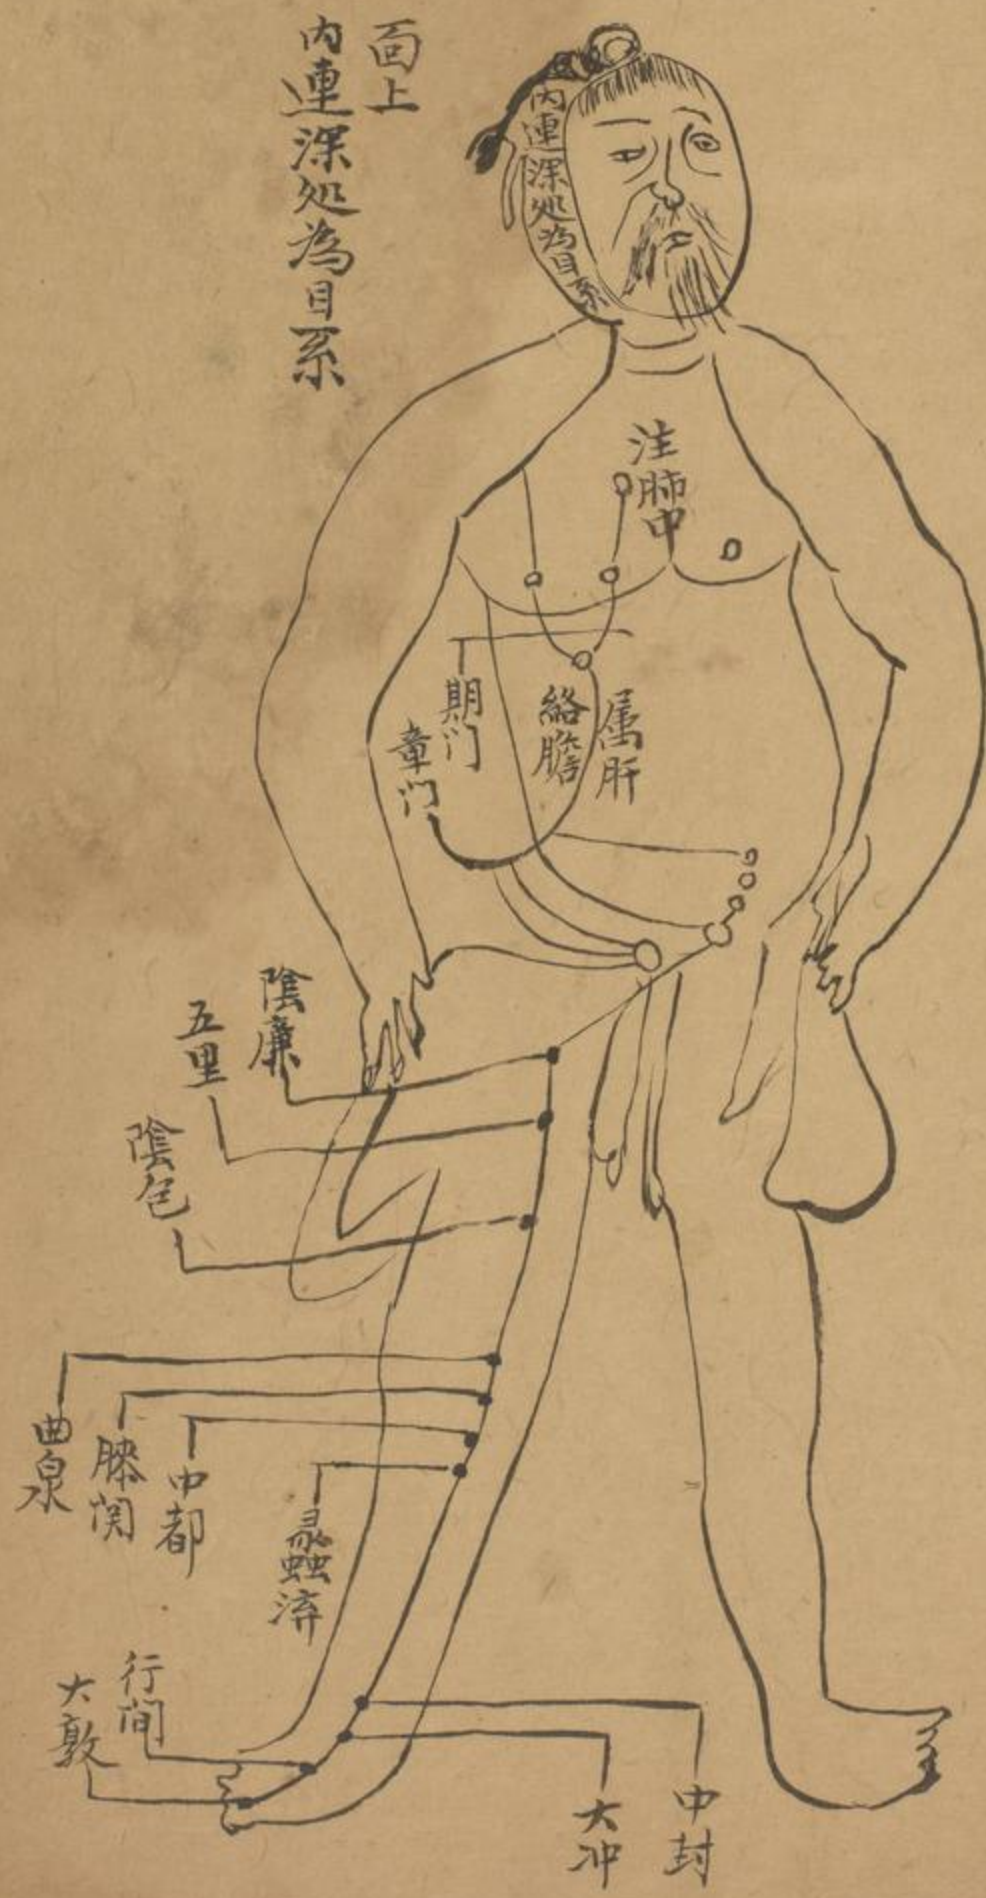 面上
内連深処為目系
内連深処為目系
注肺中
期门
章门
絡膽
属肝
陰廉
五里
陰包
曲泉
膝関
中都
蠡溝
行間
大敦
大冲
中封